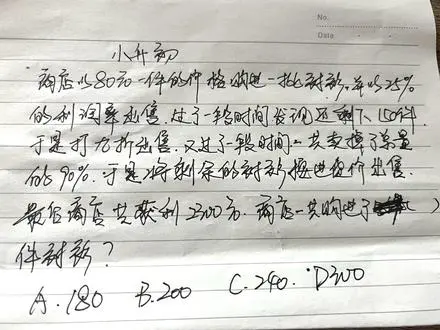 No.
Date
小升初
商店以80元一件的价格购进一批衬衫,并以25%
的利润率出售,过了一段时间发现还剩下150件,
于是打九折出售,又过了一段时间一共卖掉了总量
的90%.于是将剩余的衬衫按进货价出售.
最后商店共获利2300元.商店一共购进了( )
件衬衫?
A.180 B.200 C.240. D300